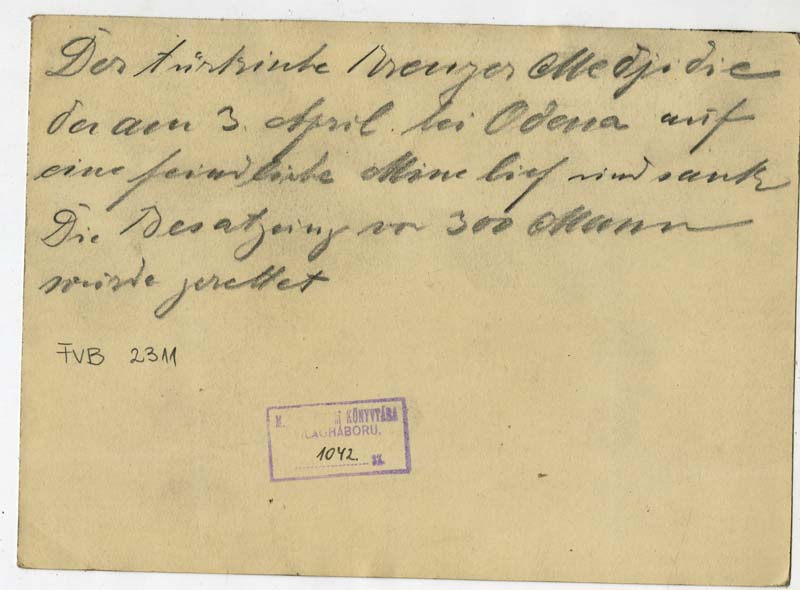 Der türkische Kreuzer Medjidie
der am 3. April bei Odessa auf
eine feindliche Mine lief und sank
Die Besatzung von 300 Mann
wurde gerettet
FVB 2311
KÖNYVTÁRA
VILÁGHÁBORU.
1042. sz.